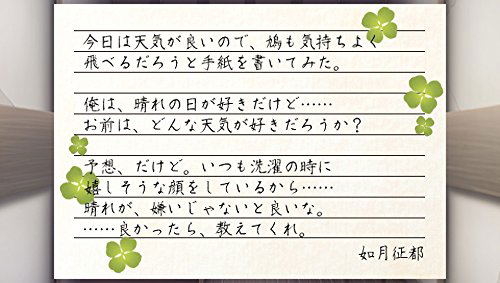 今日は天気が良いので、鳩も気持ちよく
飛べるだろうと手紙を書いてみた。
俺は、晴れの日が好きだけど……
お前は、どんな天気が好きだろうか？
予想、だけど。いつも洗濯の時に
嬉しそうな顔をしているから……
晴れが、嫌いじゃないと良いな。
……良かったら、教えてくれ。
如月征都